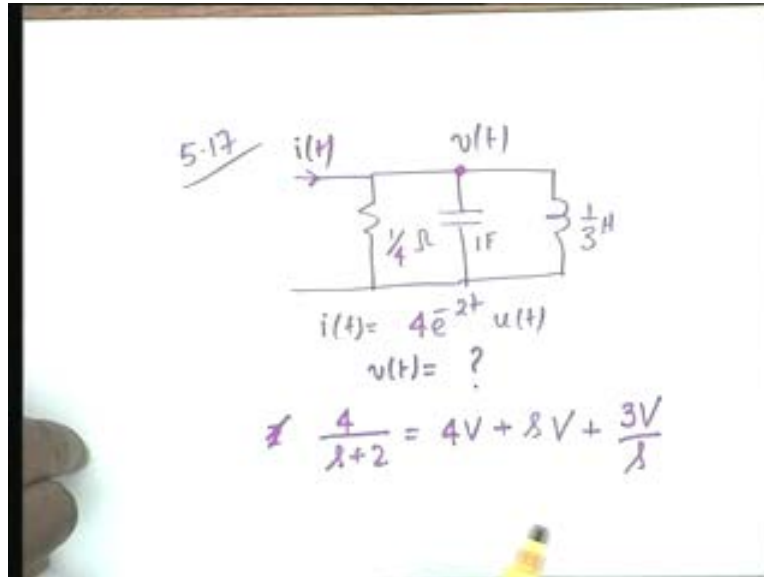 5.17
i(t) v(t)
1/4 Ω 1F 1/3 H
i(t) = 4e^{-2t} u(t)
v(t) = ?
4/(s+2) = 4V + sV + 3V/s